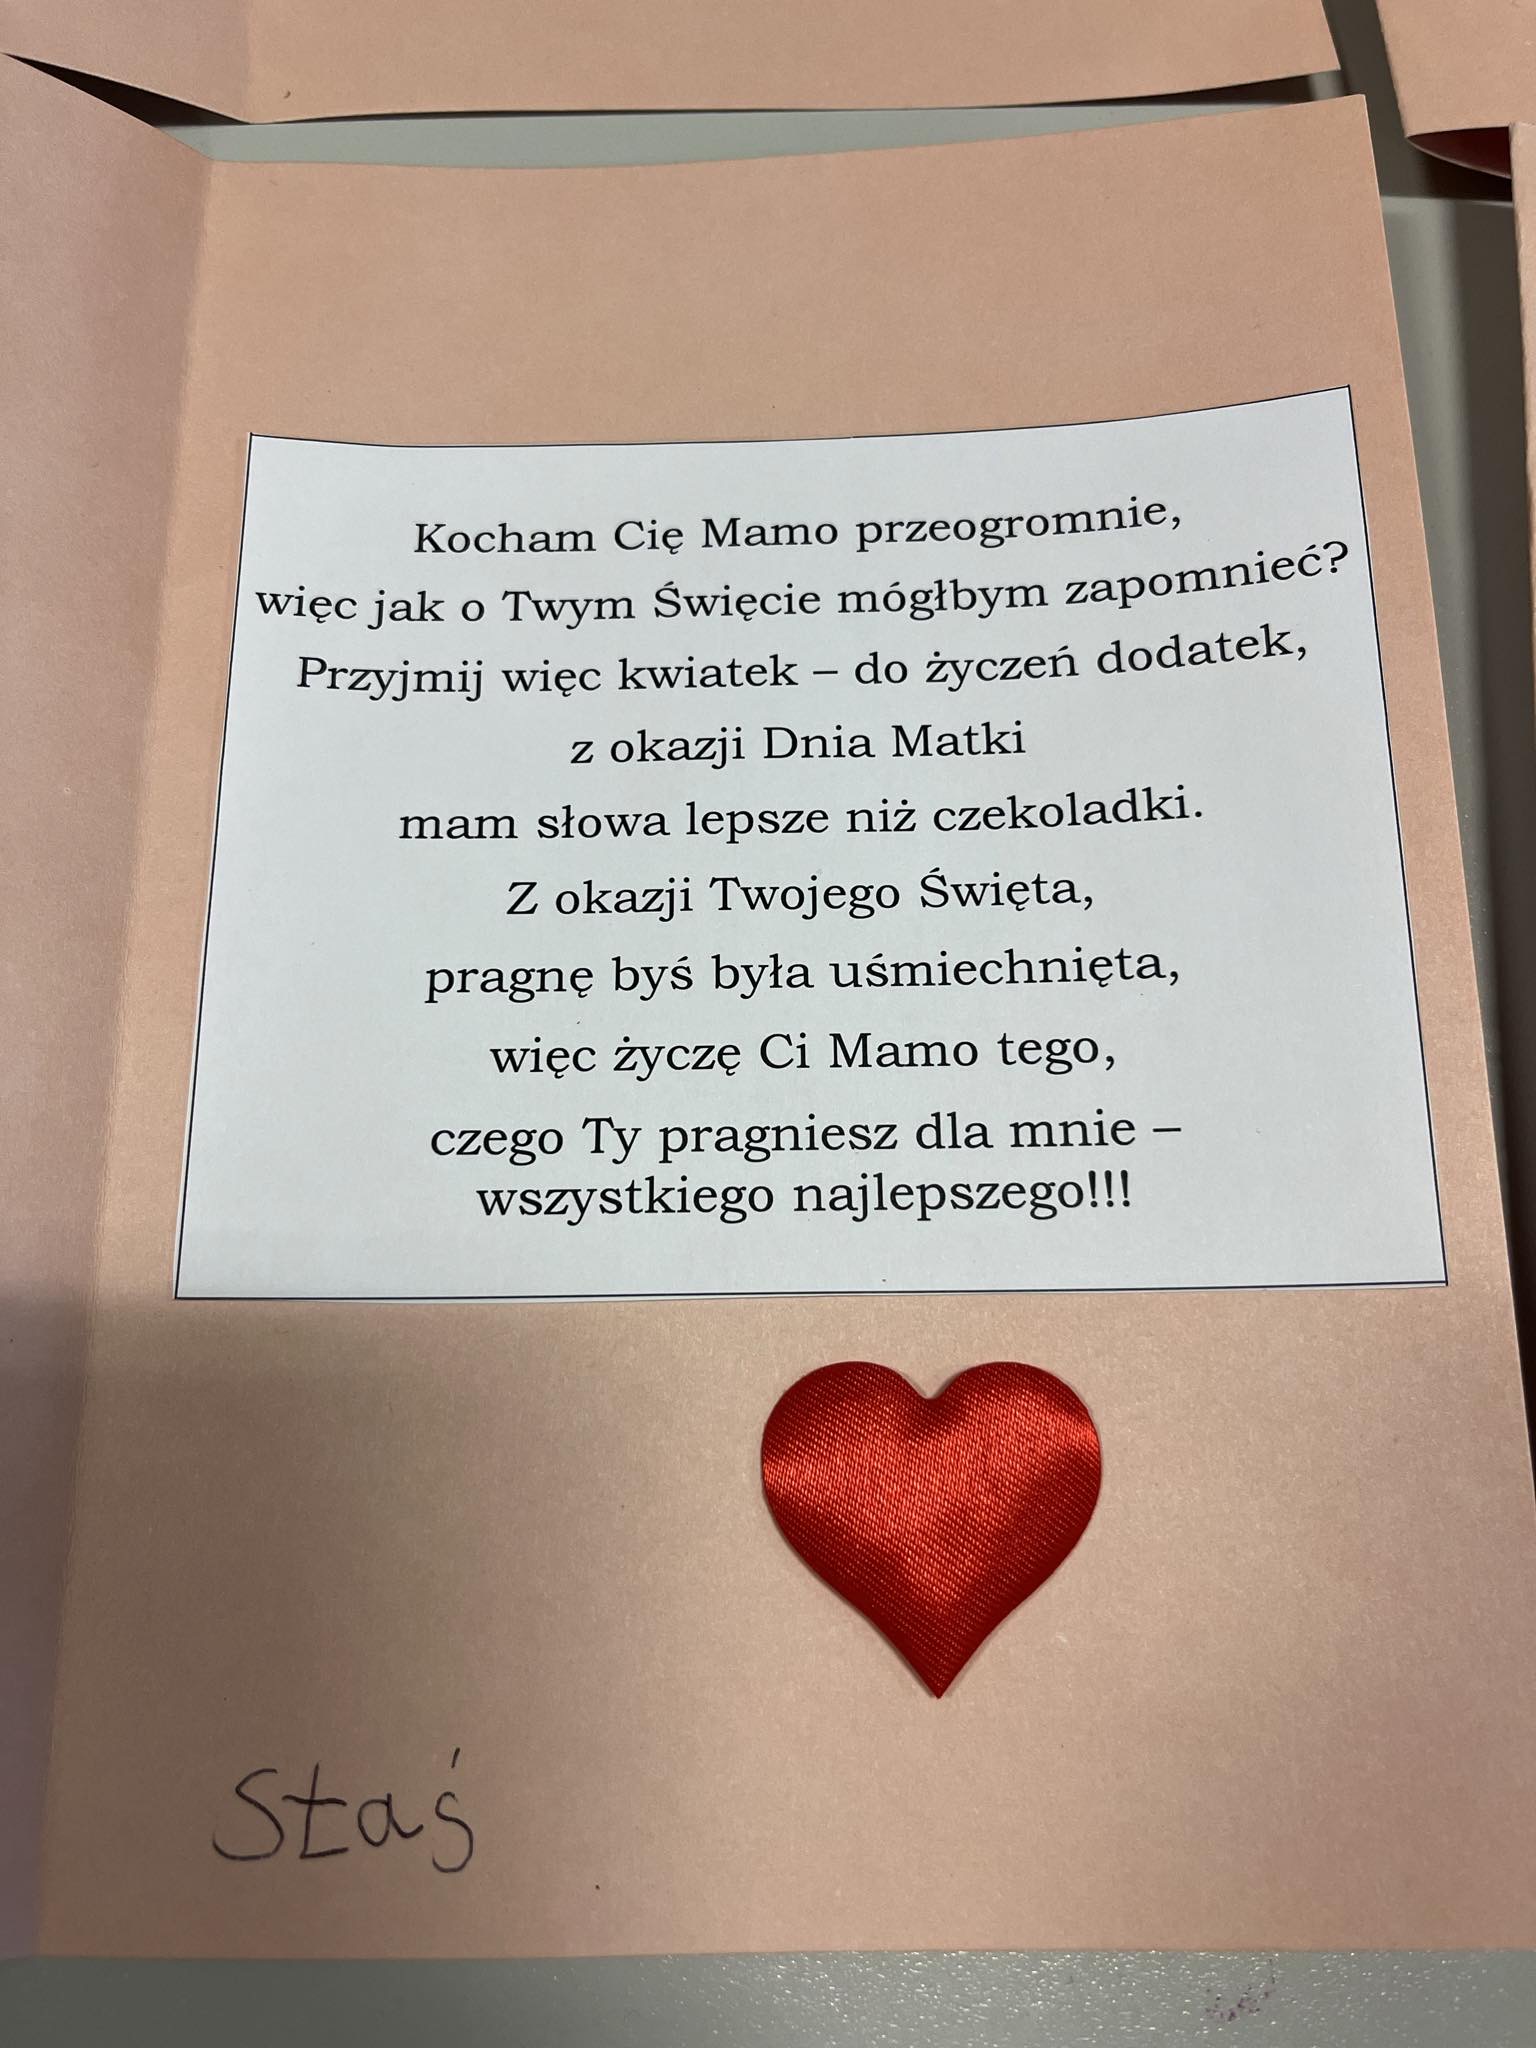 Kocham Cię Mamo przeogromnie,
więc jak o Twym Święcie mógłbym zapomnieć?
Przyjmij więc kwiatek – do życzeń dodatek,
z okazji Dnia Matki
mam słowa lepsze niż czekoladki.
Z okazji Twojego Święta,
pragnę byś była uśmiechnięta,
więc życzę Ci Mamo tego,
czego Ty pragniesz dla mnie –
wszystkiego najlepszego!!!
Staś